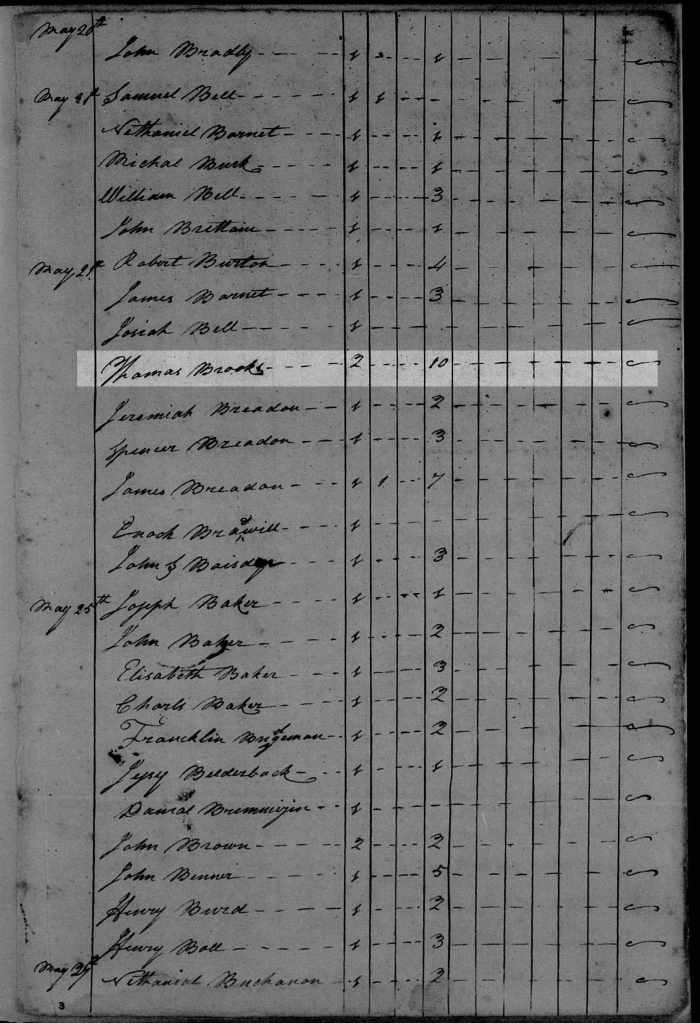 May 20th
John Bradby 1 2 1
May 21st Samuel Bell 1 1
Nethaniel Barnet 1 1
Michal Busk 1 1
William Bell 1 3
John Brettain 1 1
May 21st Robert Burton 1 4
James Barnet 1 3
Josiah Bell 1
Thomas Brooks 2 10
Jeremiah Breadon 1 2
Spencer Breadon 1 3
James Breadon 1 1 7
Enoch 1
John Boisdon 1 3
May 25th Joseph Baker 1 1
John Baker 1 2
Elisabeth Baker 1 3
Charls Baker 1 2
Francklin Bridgeman 1 2
Jesy Belderback 1 1
Danial 1
John Brown 2 2
John Benner 1 5
Henry Burd 1 2
Henry Ball 1 3
May 29th
Nethanial Buchanon 1 2
3